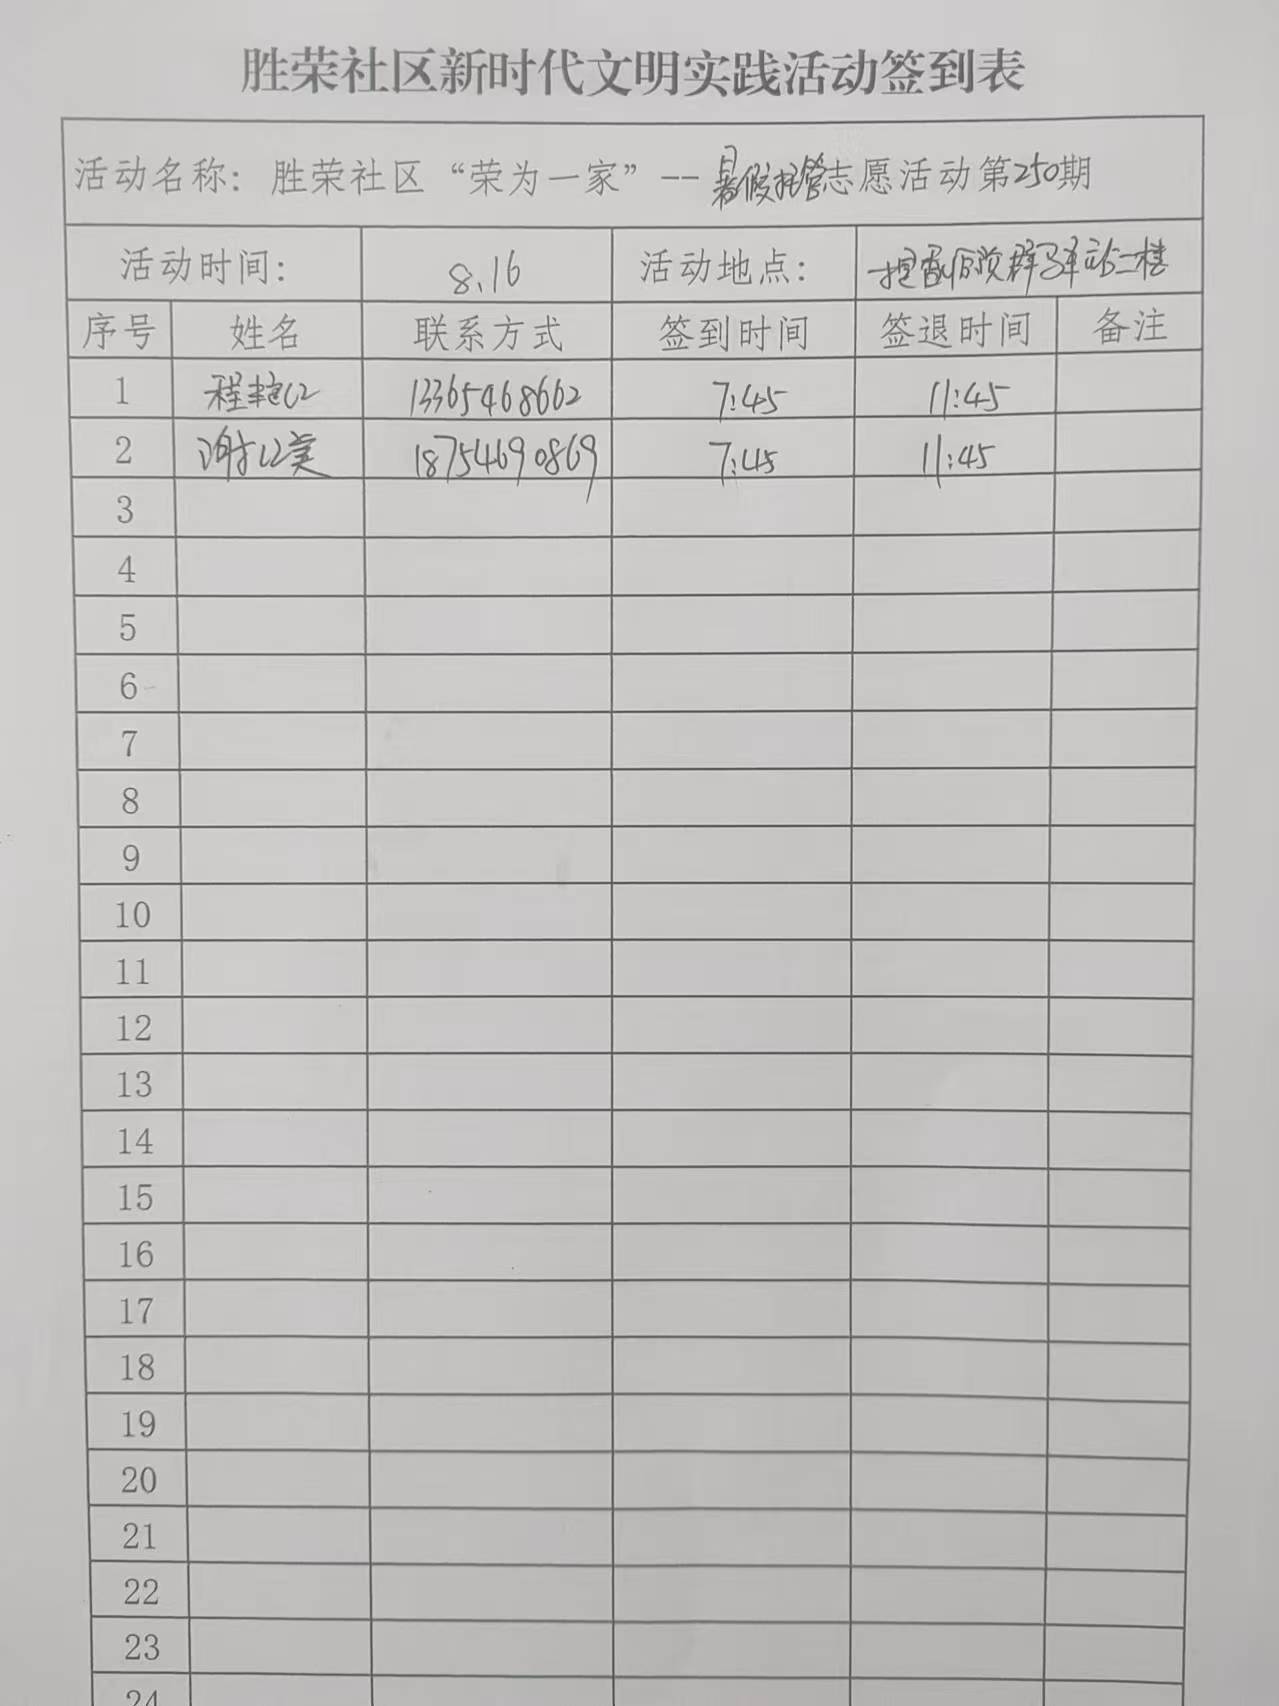 胜荣社区新时代文明实践活动签到表
活动名称：胜荣社区“荣为一家”--暑假托管志愿活动第250期
活动时间： 8.16 活动地点： 党群驿站二楼
序号 姓名 联系方式 签到时间 签退时间 备注
1 程 13365468662 7:45 11:45
2 谢 美 18754690869 7:45 11:45
3
4
5
6
7
8
9
10
11
12
13
14
15
16
17
18
19
20
21
22
23
24